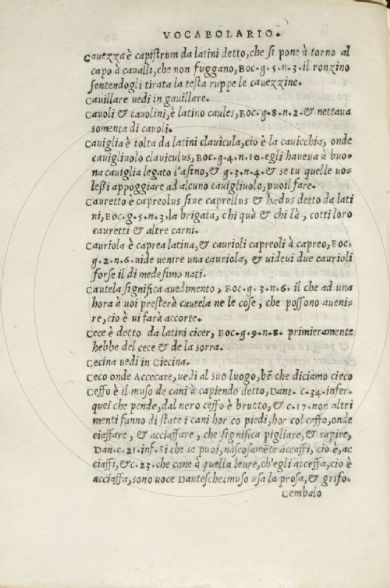 VOCABOLARIO.
Cavezza è capistrum da latini detto, che si pone à torno al
capo à cavalli, che non fuggano, BOC. g. 5. n. 3. il ronzino
sentendogli tirata la testa ruppe le cavezzine.
Cavillare vedi in gavillare.
Cavoli & cavolini, è latino caules, BOC. g. 8. n. 2. & nettava
somenta di cavoli.
Caviglia è tolta da latini clavicula, cio è la cavicchia, onde
cavigliuolo claviculus, BOC. g. 4. n. 10. egli haveva à buo=
na caviglia legato l'asino, & g. 3. n. 4. & se tu quelle vo=
lessi appoggiare ad alcuno cavigliuolo, puoil fare.
Cavretto è capreolus sive caprellus & hędus detto da lati
ni, BOC. g. 5. n. 3. la brigata, chi quà & chi là, cotti loro
cavretti & altre carni.
Cavriola è caprea latina, & cavrioli capreoli à capreo, BOC.
g. 2. n. 6. vide venire una cavriola, & videvi due cavrioli
forse il di medesimo nati.
Cautela significa avedimento, BOC. g. 3. n. 6. il che ad una
hora à voi presterà cautela ne le cose, che possono aveni=
re, cio è vi farà accorte.
Cece è detto da latini cicer, BOC. g. 9. n. 8. primieramente
hebbe del cece & de la sorra.
Cecina vedi in Ciecina.
Ceco onde Accecare, vedi al suo luogo, bẽ che diciamo cieco
Ceffo è il muso de cani à capiendo detto, DANT. c. 34. infer=
quei che pende, dal nero ceffo è brutto, & c. 17. non altri
menti fanno di state i cani hor co piedi, hor col ceffo, onde
ciaffare, & acciaffare, che significa pigliare, & rapire,
DAN. c. 21. inf. Si che se puoi, nascosamẽte accaffi, cio è, ac
ciaffi, & c. 23. che cane à quella levre, ch'egli acceffa, cio è
acciaffa, sono voce Dantesche: muso usa la prosa, & grifo.
Cembalo